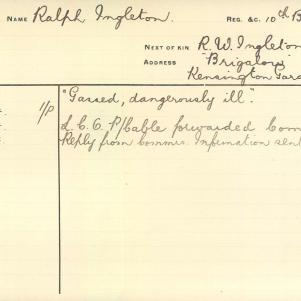 NAME Ralph Ingleton. REG. &C. 10th B
NEXT OF KIN R. W. Ingleton
ADDRESS "Brigalow"
Kensington Gard
1/P "Gassed, dangerously ill".
P/Cable forwarded Com
Reply from Commis. Information sent